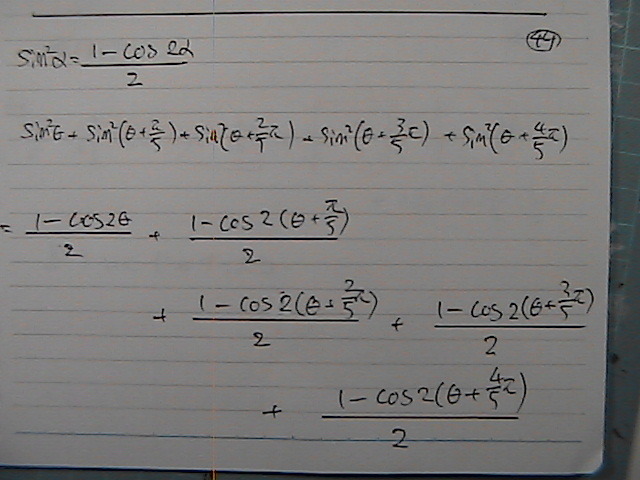 (44)
sin²α = (1 − cos 2α)/2
sin²θ + sin²(θ + π/5) + sin²(θ + 2/5 π) + sin²(θ + 3/5 π) + sin²(θ + 4/5 π)
= (1 − cos2θ)/2 + (1 − cos 2(θ + π/5))/2
+ (1 − cos 2(θ + 2/5 π))/2 + (1 − cos 2(θ + 3/5 π))/2
+ (1 − cos 2(θ + 4/5 π))/2